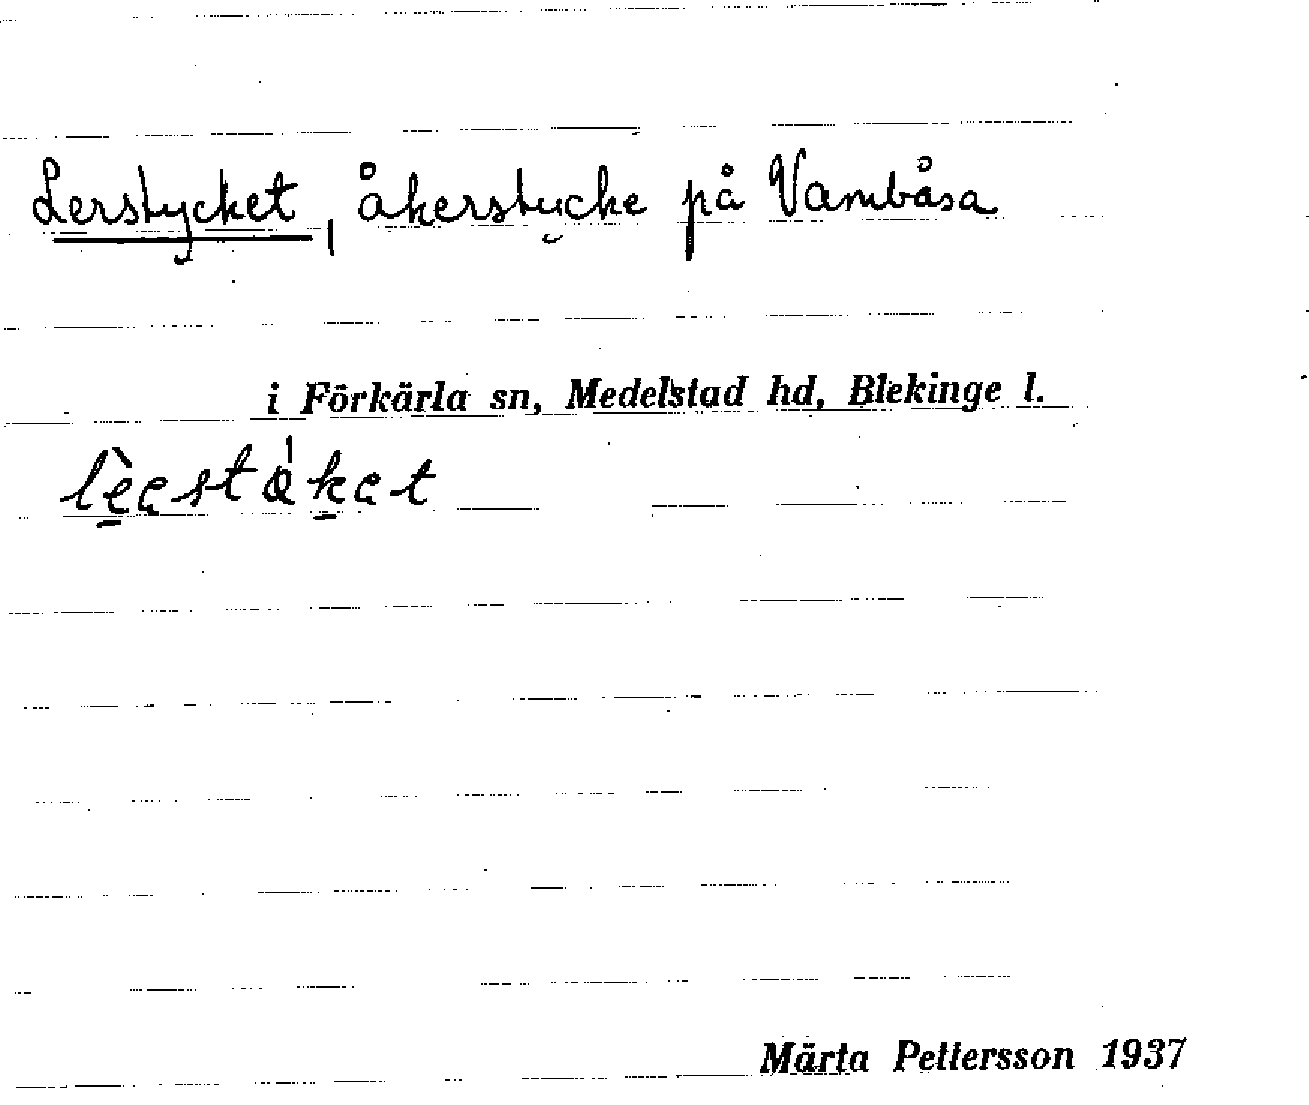 Lerstycket, åkerstycke på Vambåsa
i Förkärla sn, Medelstad hd, Blekinge l.
Märta Pettersson 1937